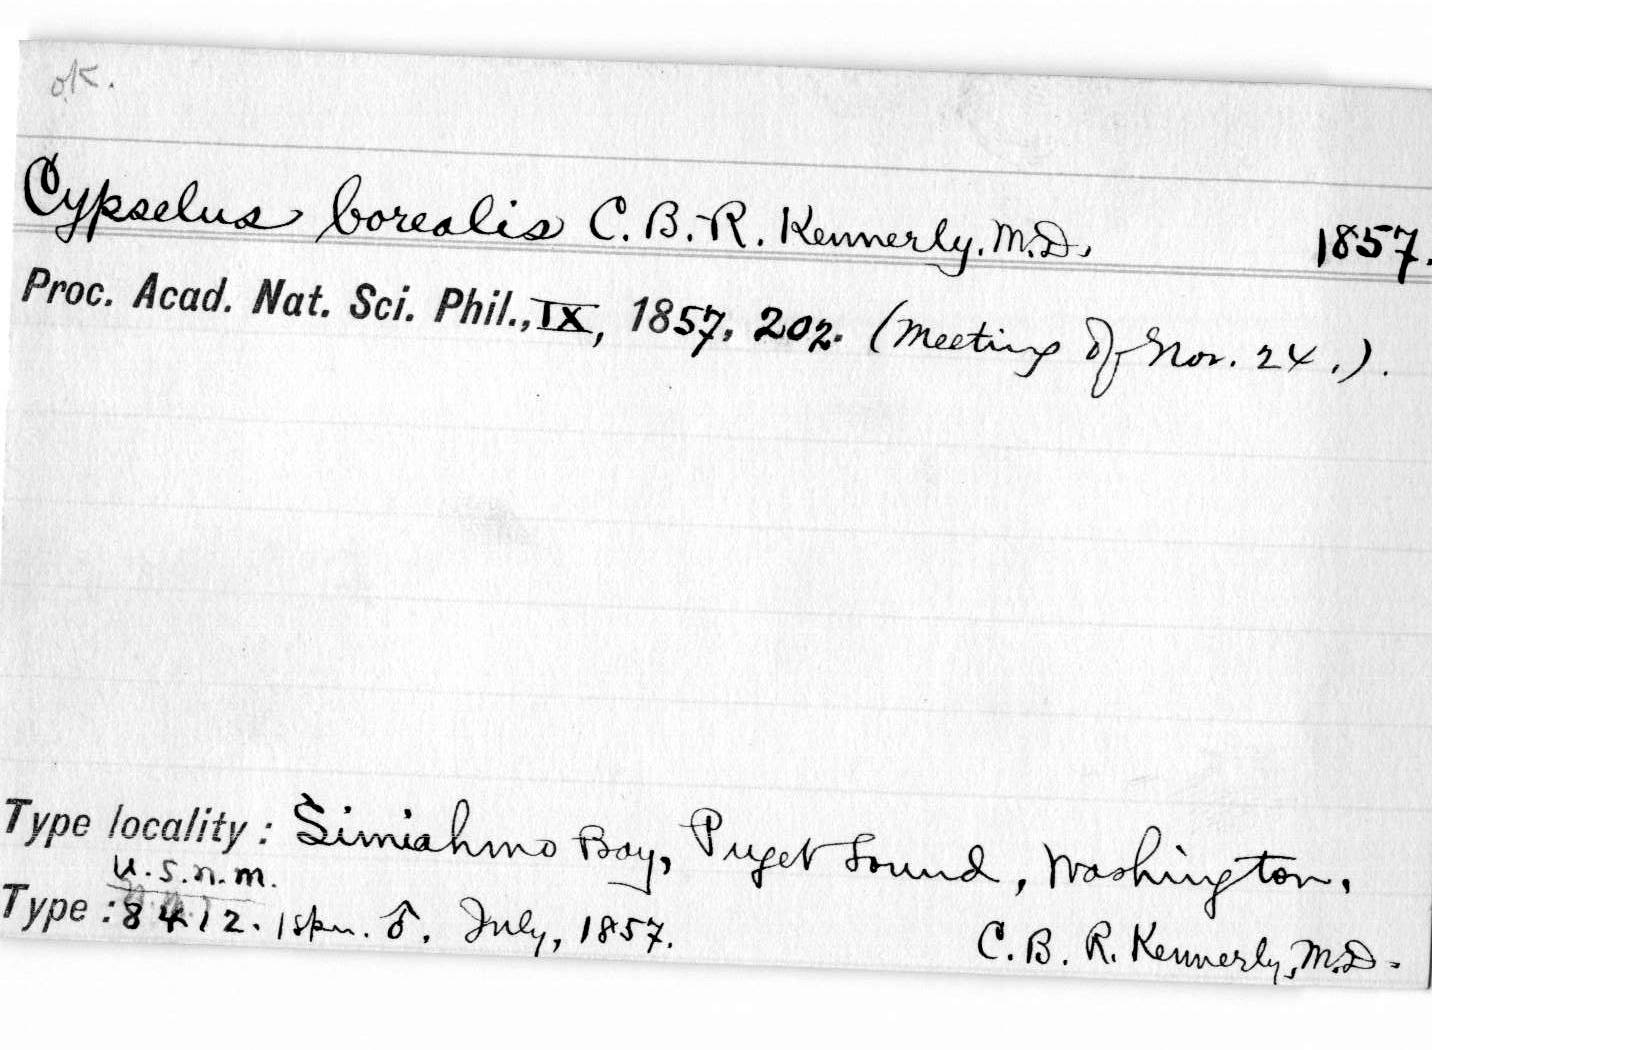 ok.
Cypselus borealis C. B. R. Kennerly, M.D. 1857.
Proc. Acad. Nat. Sci. Phil., IX, 1857, 202. (Meeting of Nov. 24.).
Type locality: Simiahmo Bay, Puget Sound, Washington.
U.S.N.M.
Type: 8412. 1 spn. ♂. July, 1857. C. B. R. Kennerly, M.D.